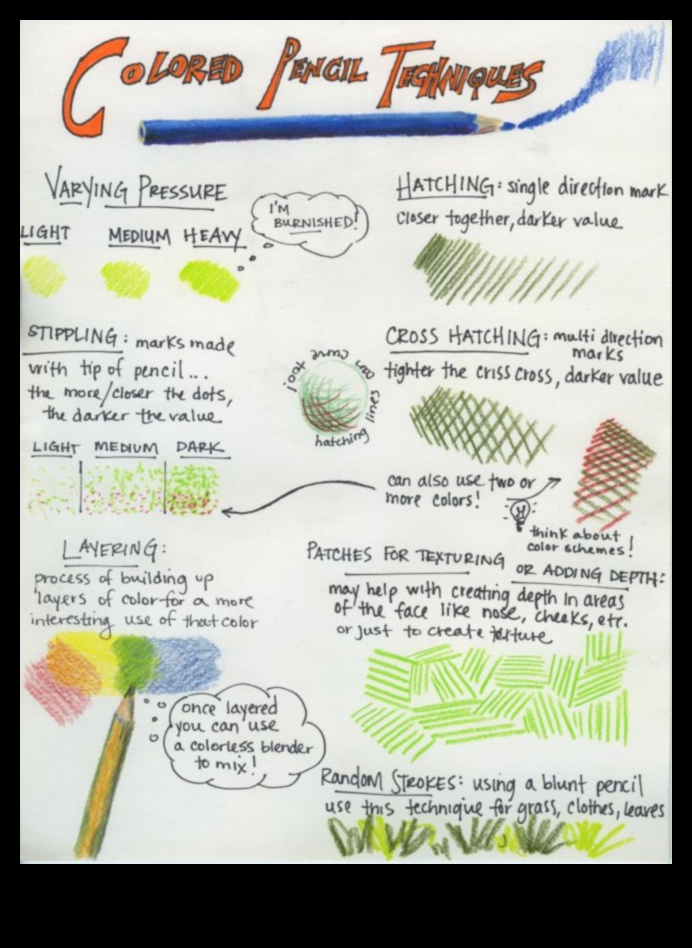 COLORED PENCIL TECHNIQUES
VARYING PRESSURE
LIGHT MEDIUM HEAVY
I'M
BURNISHED!
HATCHING: single direction mark
closer together, darker value
STIPPLING: marks made
with tip of pencil...
the more/closer the dots,
the darker the value
LIGHT MEDIUM DARK
can curve your
hatching lines
CROSS HATCHING: multi direction
marks
tighter the criss cross, darker value
can also use two or
more colors!
think about
color schemes!
LAYERING:
process of building up
layers of color for a more
interesting use of that color
once layered
you can use
a colorless blender
to mix!
PATCHES FOR TEXTURING
OR ADDING DEPTH:
may help with creating depth in areas
of the face like nose, cheeks, etc.
or just to create texture
RANDOM STROKES: using a blunt pencil
use this technique for grass, clothes, leaves